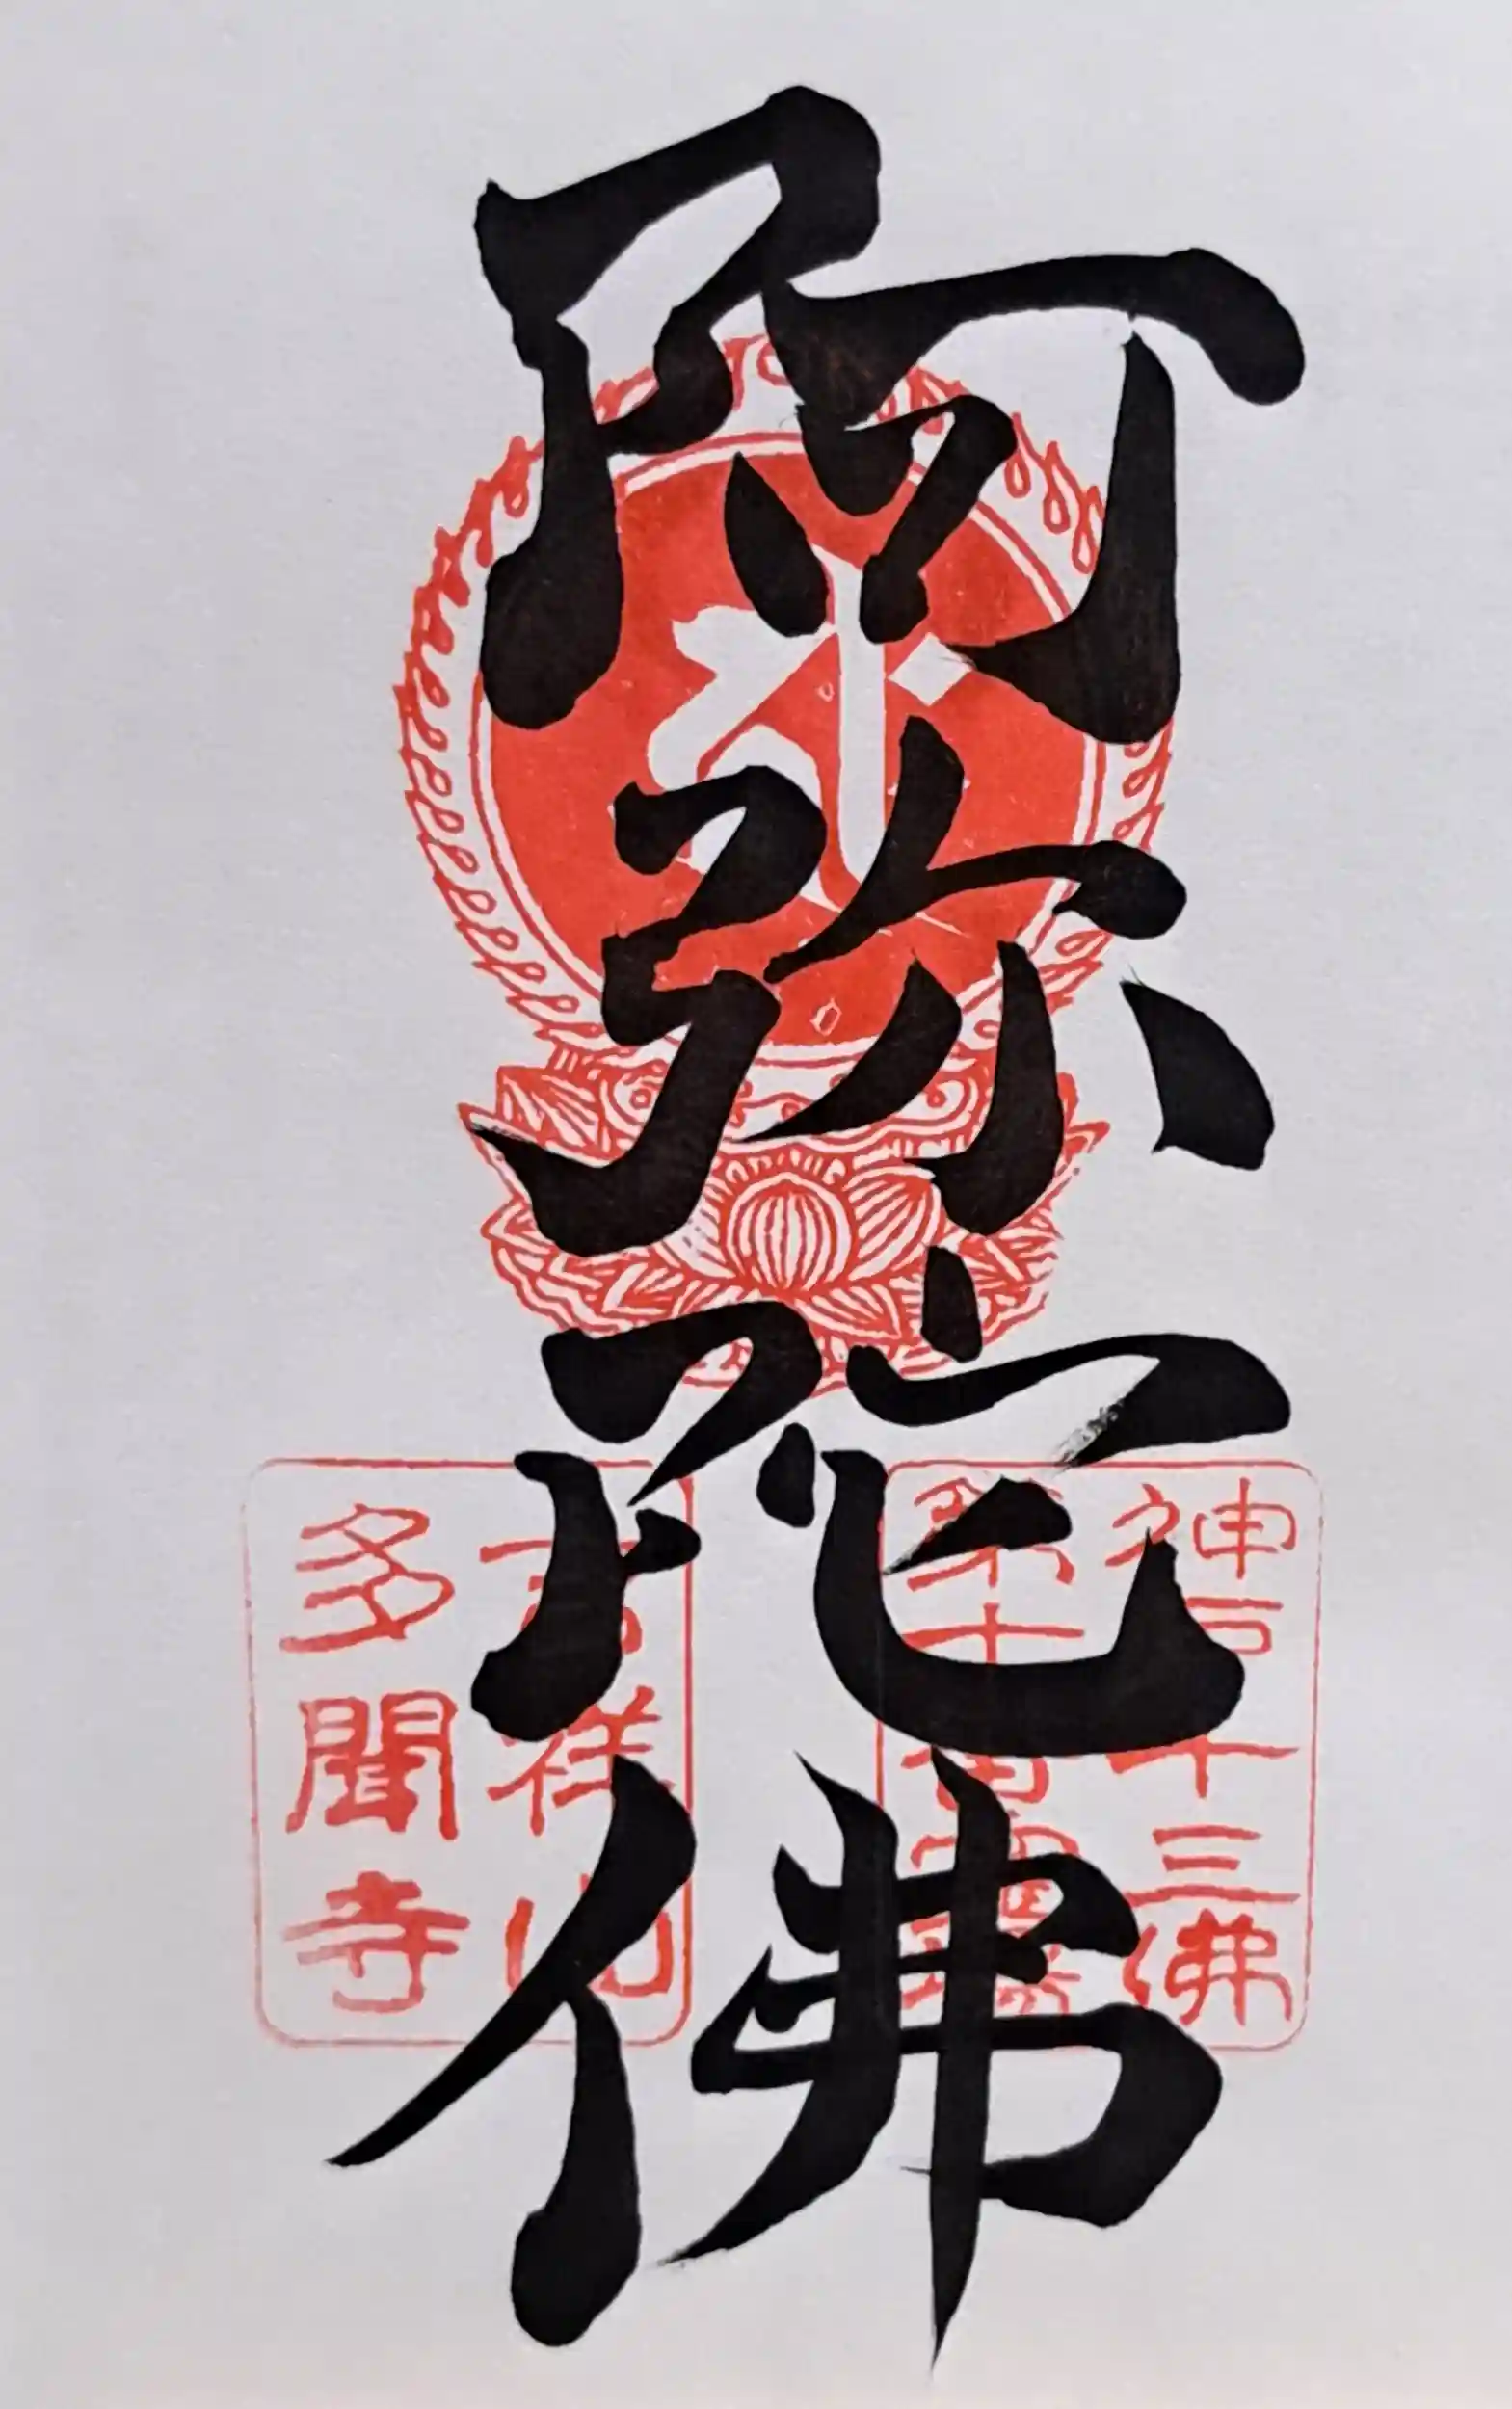 阿弥陀佛
神戸十三佛
第十番霊場
吉祥山
多聞寺